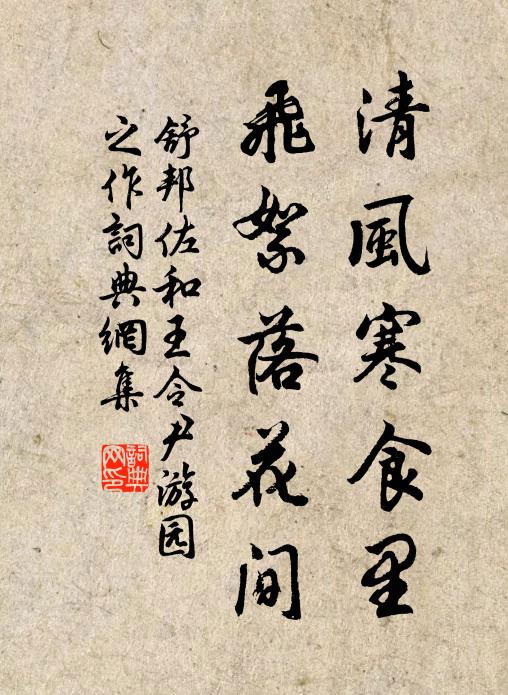 清風寒食里
飛絮落花間
舒邦佐和王令尹游园
之作詞典網集
詞典網印